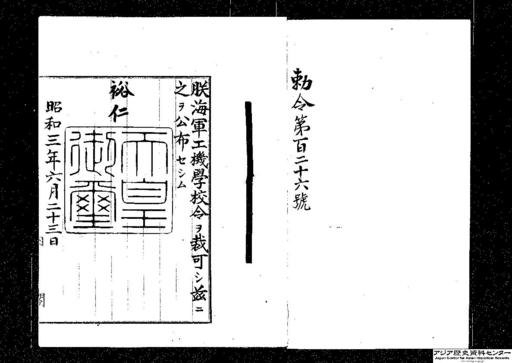 勅令第百二十六號
朕海軍工機學校令ヲ裁可シ茲ニ
之ヲ公布セシム
裕仁
天皇
御璽
昭和三年六月二十三日
アジア歴史資料センター
Japan Center for Asian Historical Records